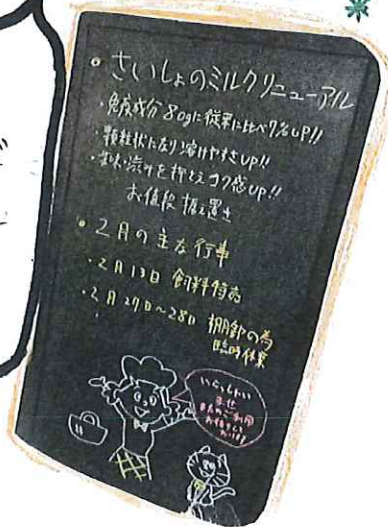 ・さいしょのミルクリニューアル
・免疫成分80gに従来に比べ7%UP!!
・顆粒状になり溶けやすさUP!!
・苦味・渋みを抑えコク感UP!!
お値段据え置き
・2月の主な行事
・2月13日 飼料特売
・2月27日~28日 棚卸の為
臨時休業
いらっしゃい
ませ
またのご利用
お待ちして